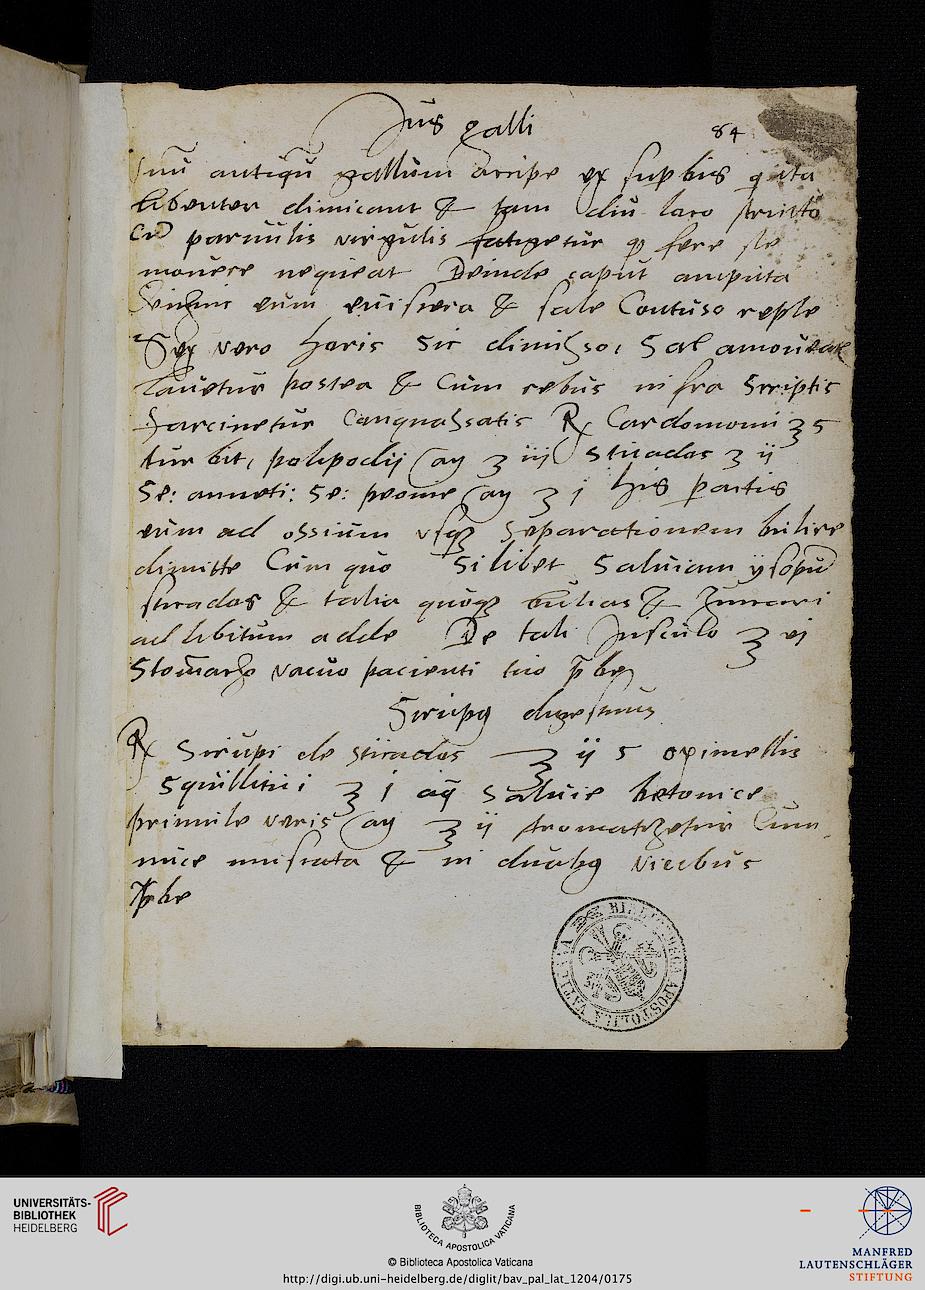 Jus galli
84
antiqu̅ gallum arripe ex supbis q ita
libenter dimicant & tam diu laro stricto
cu̅ paruulis virgulis fatigetur q fere se
mouere nequeat Deinde caput amputa
eum euiscera & sale Contuso reple
Sex vero horis sic dimisso, Sal amoueat
lauetur postea & Cum rebus infra Scriptis
farcinetur Conquassatis ℞ Cardomomi ʒ 5
turbit, polipodij an ʒ iij Sticados ʒ ij
Se: anneti: Se: peonie an ʒ j his pactis
eum ad ossium vsqȝ Separationem bulire
dimitte Cum quo Si libet Saluiam ysopu̅
sticados & talia quoqȝ &
ad libitum adde De tali Jusculo ℥ vj
Stomacho vacuo pacienti tuo p̅be
Sirupg digestiuus
℞ Sirupi de sticados ℥ ij 5 oximellis
Squillitici ℥ j aq̅ Saluie betonice
primule veris an ℥ ij Aromatizetur Cum
nuce muscata & in duabg vicibus
p̅be
BIBLIOTHECA APOSTOLICA VATICANA
UNIVERSITÄTS-
BIBLIOTHEK
HEIDELBERG
BIBLIOTECA APOSTOLICA VATICANA
© Biblioteca Apostolica Vaticana
http://digi.ub.uni-heidelberg.de/diglit/bav_pal_lat_1204/0175
MANFRED
LAUTENSCHLÄGER
STIFTUNG